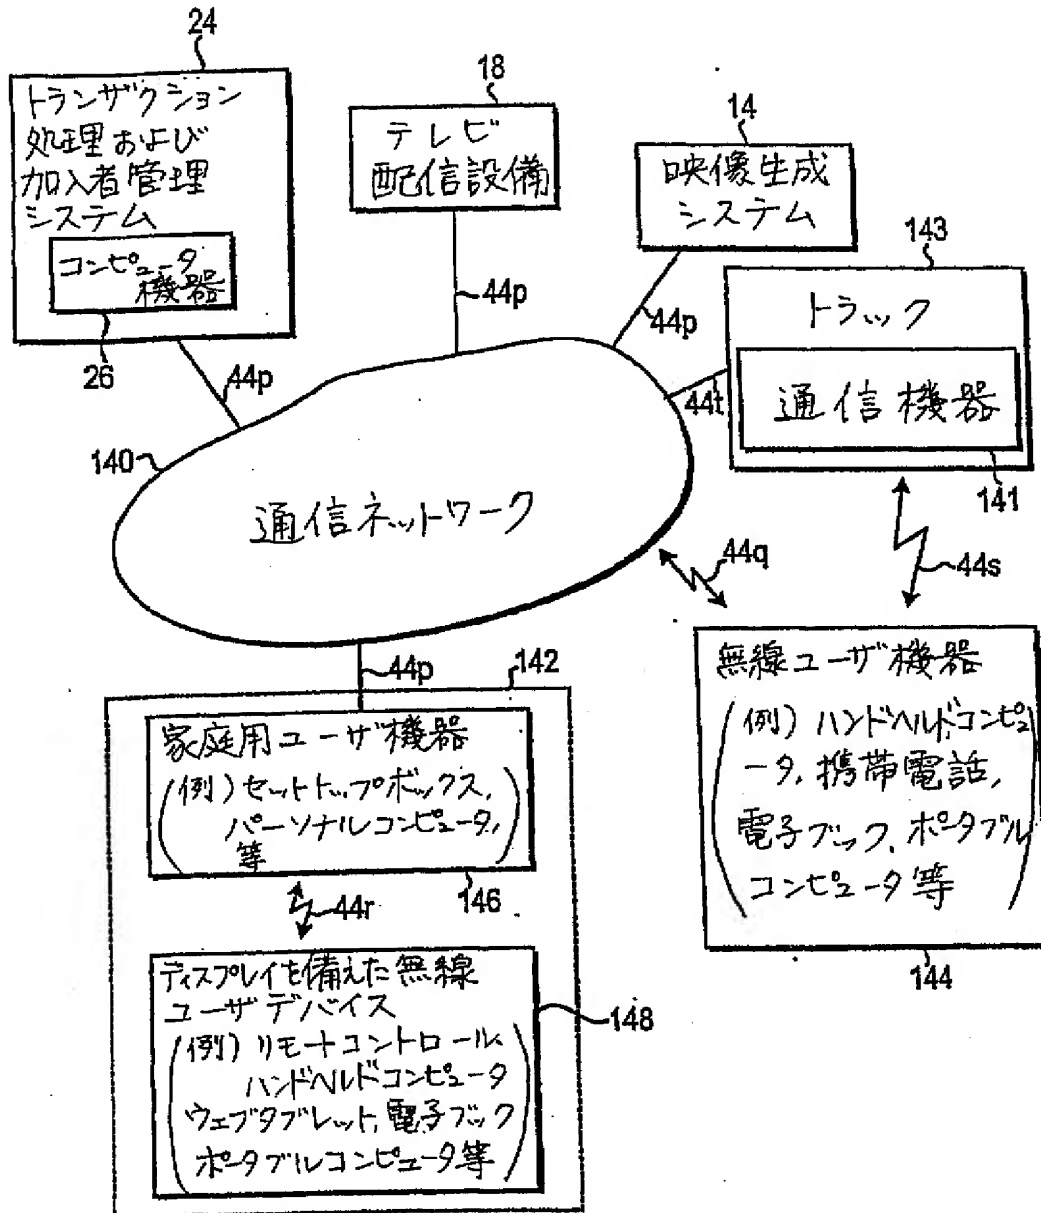 24
トランザクション
処理および
加入者管理
システム
コンピュータ
機器
26
44p
18
テレビ
配信設備
44p
14
映像生成
システム
44p
143
トラック
通信機器
141
44t
140
通信ネットワーク
44q
44s
44p
142
家庭用ユーザ機器
(例)セットトップボックス、
パーソナルコンピュータ、
等
146
44r
ディスプレイを備えた無線
ユーザデバイス
(例)リモートコントロール、
ハンドヘルドコンピュータ
ウェブタブレット、電子ブック
ポータブルコンピュータ等
148
無線ユーザ機器
(例)ハンドヘルドコンピュ
ータ、携帯電話、
電子ブック、ポータブル
コンピュータ等
144